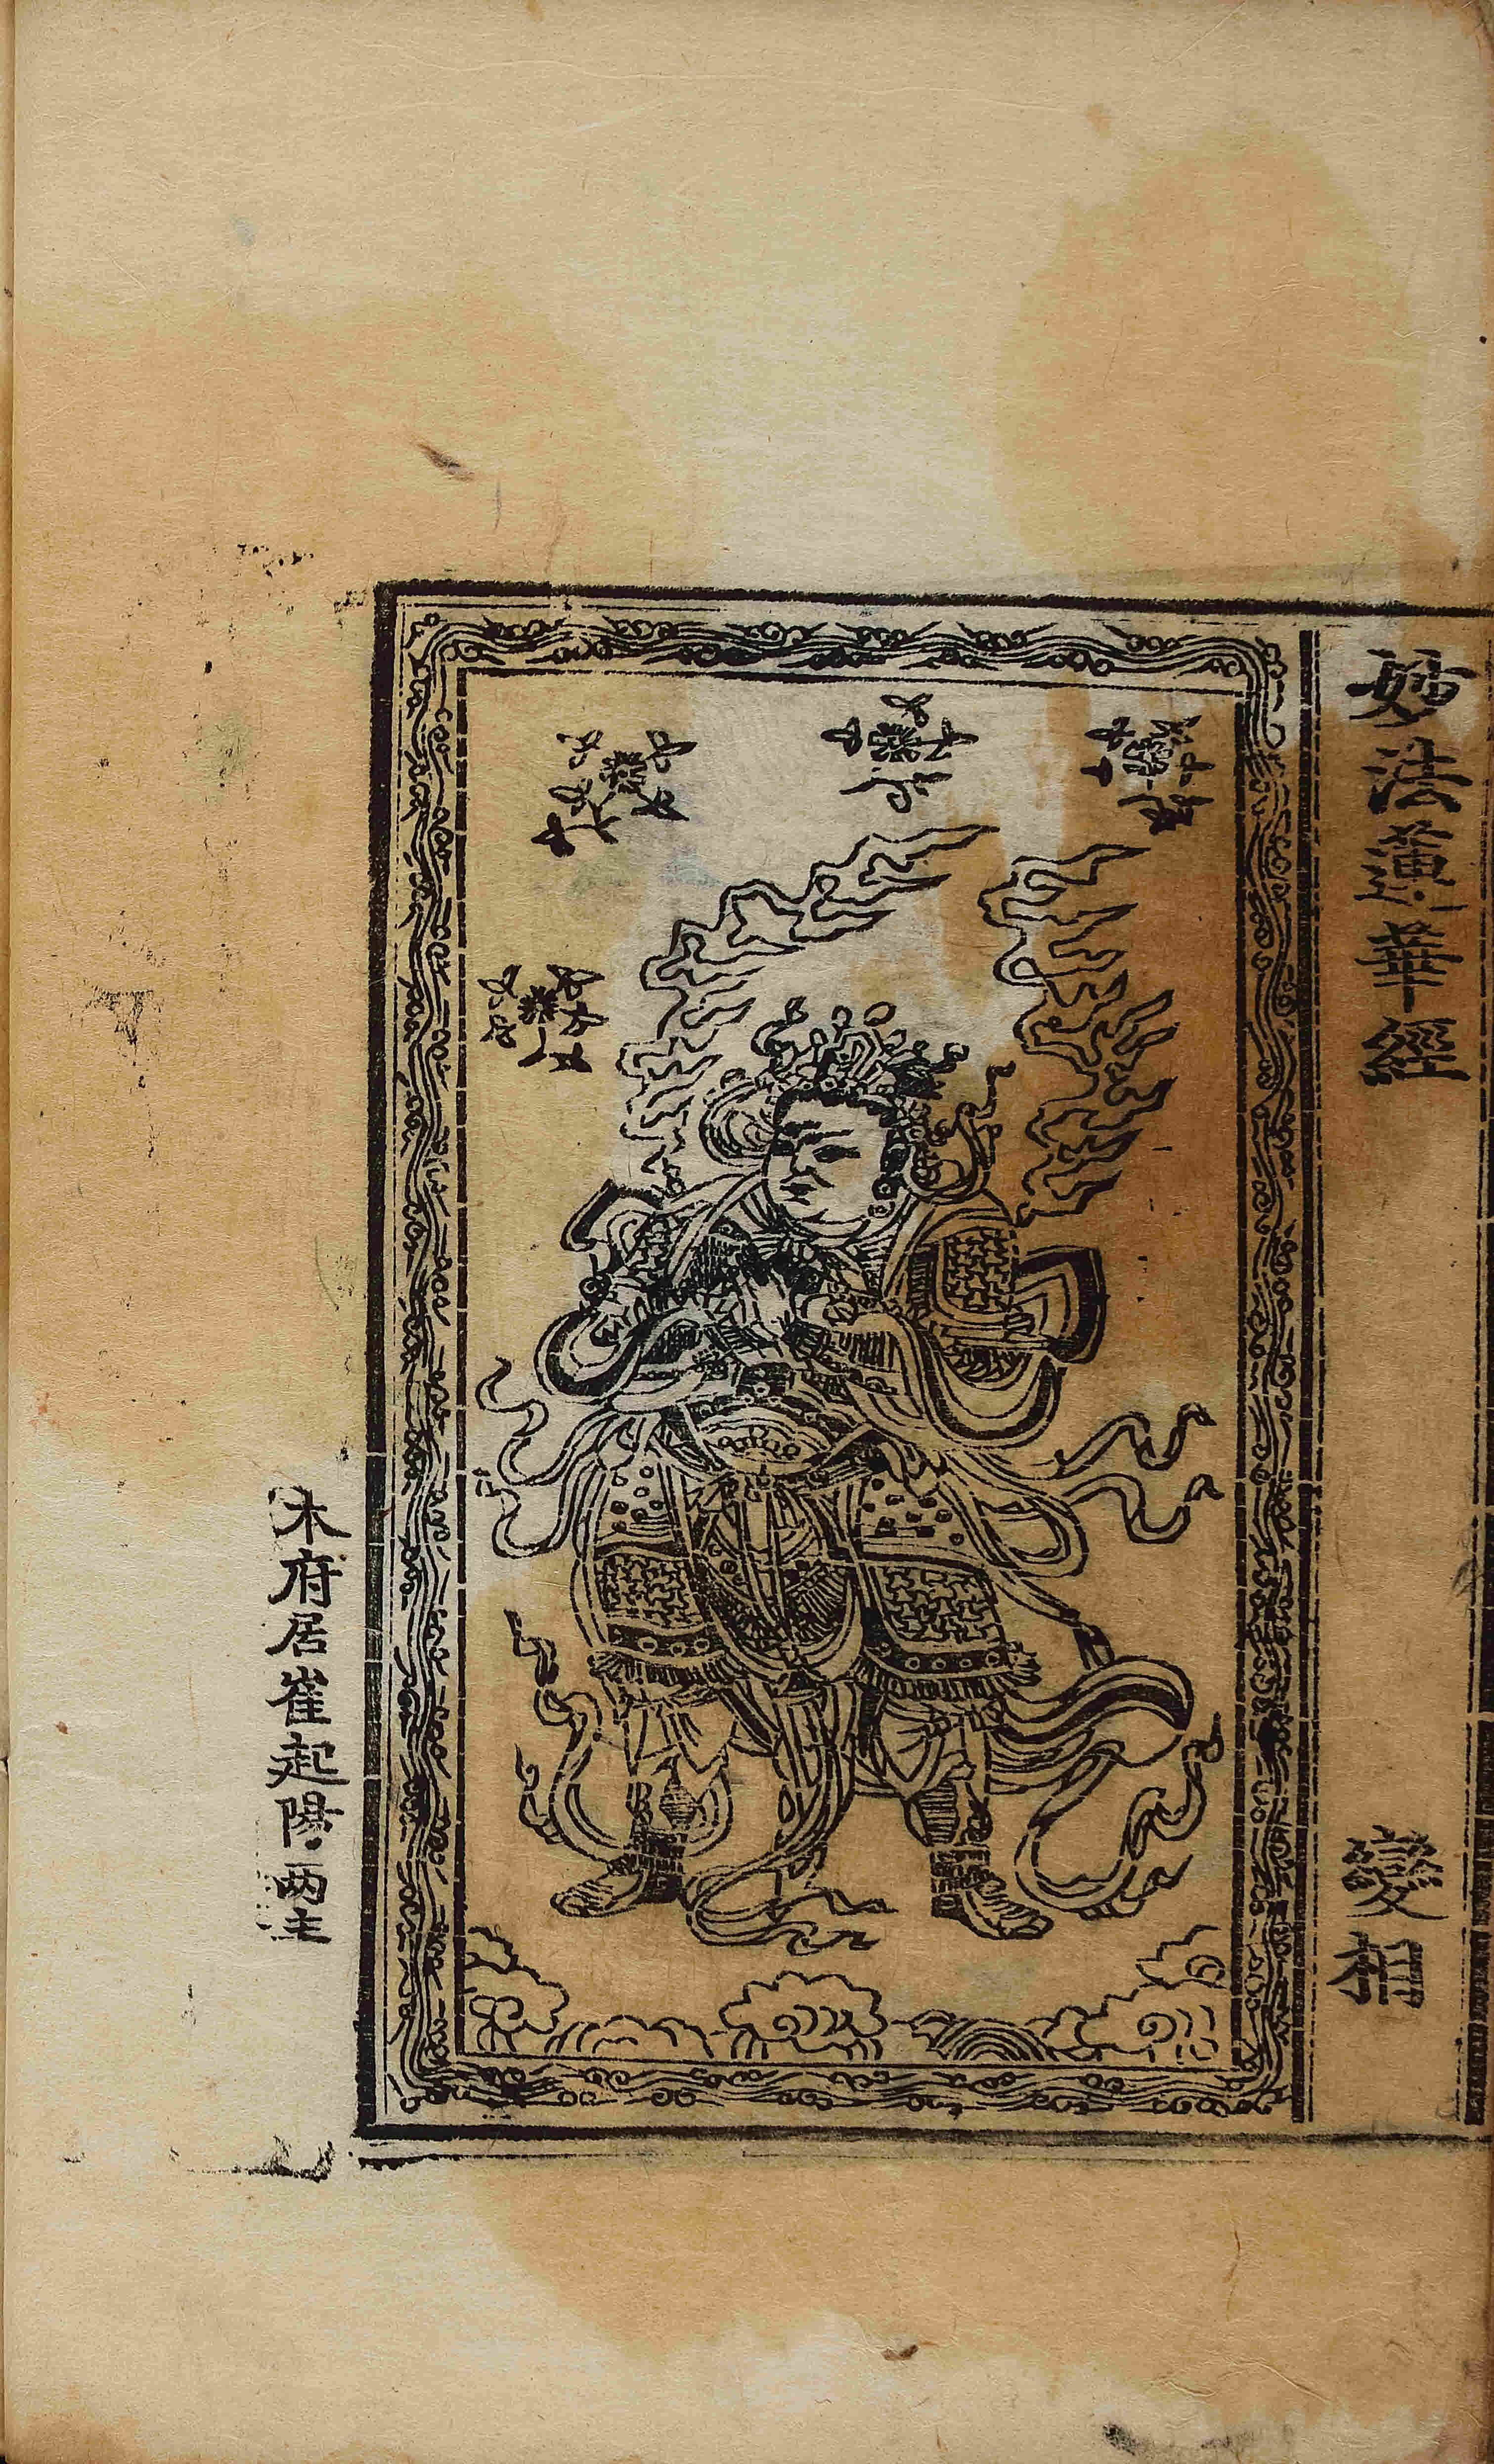 妙法蓮華經 變相
木府居崔起陽两主